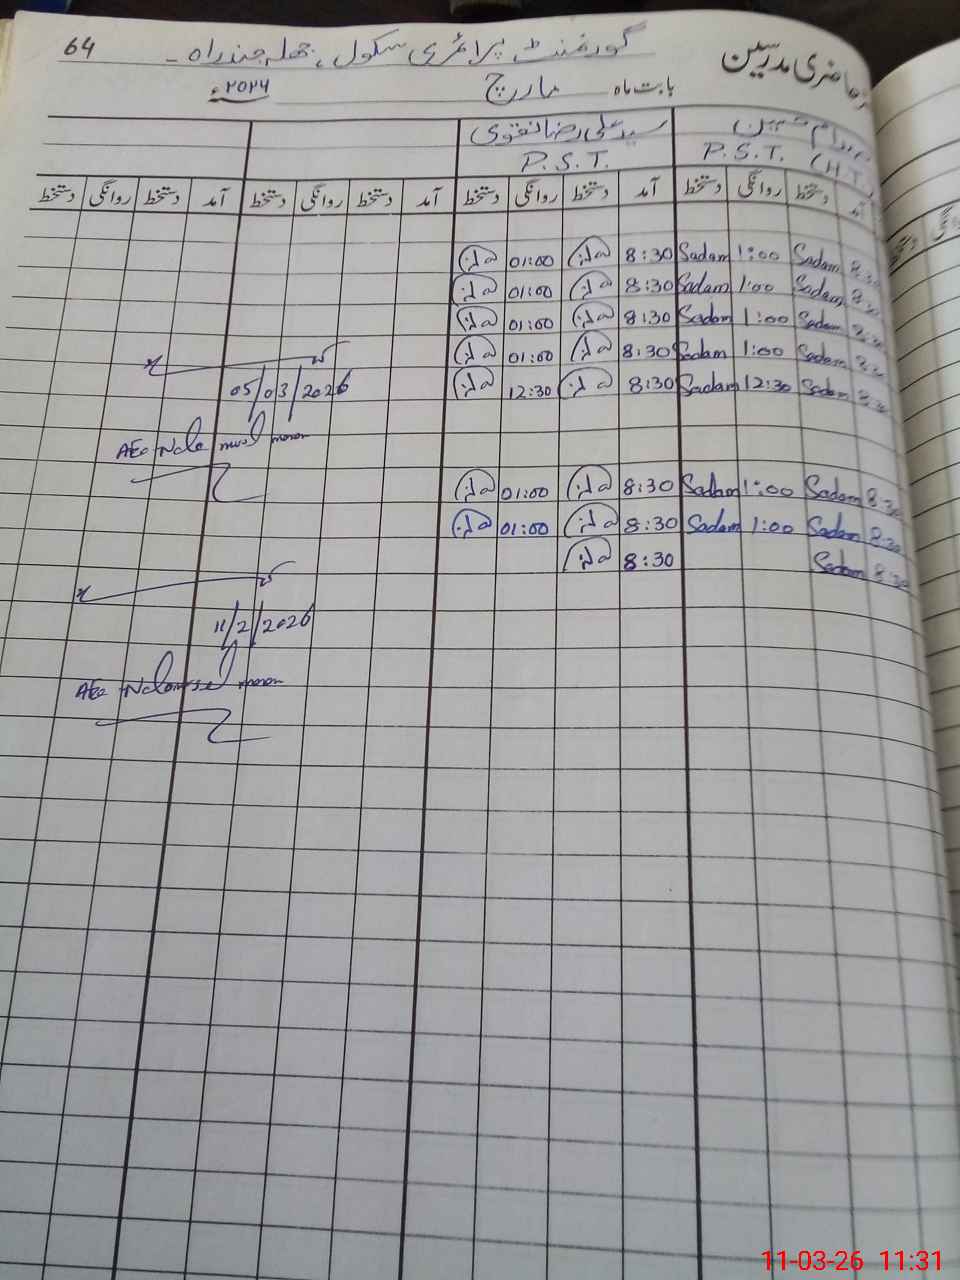 64 گورنمنٹ پرائمری سکول، جھلہ جندراہ - حاضری مدرسین
بابت ماہ مارچ ۲۰۲۶ء
سید علی رضا نقوی
P.S.T. P.S.T. (H.T.)
آمد دستخط روانگی دستخط آمد دستخط روانگی دستخط آمد دستخط روانگی دستخط آمد دستخط روانگی دستخط
8:30 Sadam 1:00 Sadam 8:30 01:00
8:30 Sadam 1:00 Sadam 8:30 01:00
8:30 Sadam 1:00 Sadam 8:30 01:00
8:30 Sadam 1:00 Sadam 8:30 01:00
8:30 Sadam 12:30 Sadam 8:30 12:30
05/03/2026
AEO
8:30 Sadam 1:00 Sadam 8:30 01:00
8:30 Sadam 1:00 Sadam 8:30 01:00
8:30 Sadam 8:30
11/2/2026
AEO
11-03-26 11:31